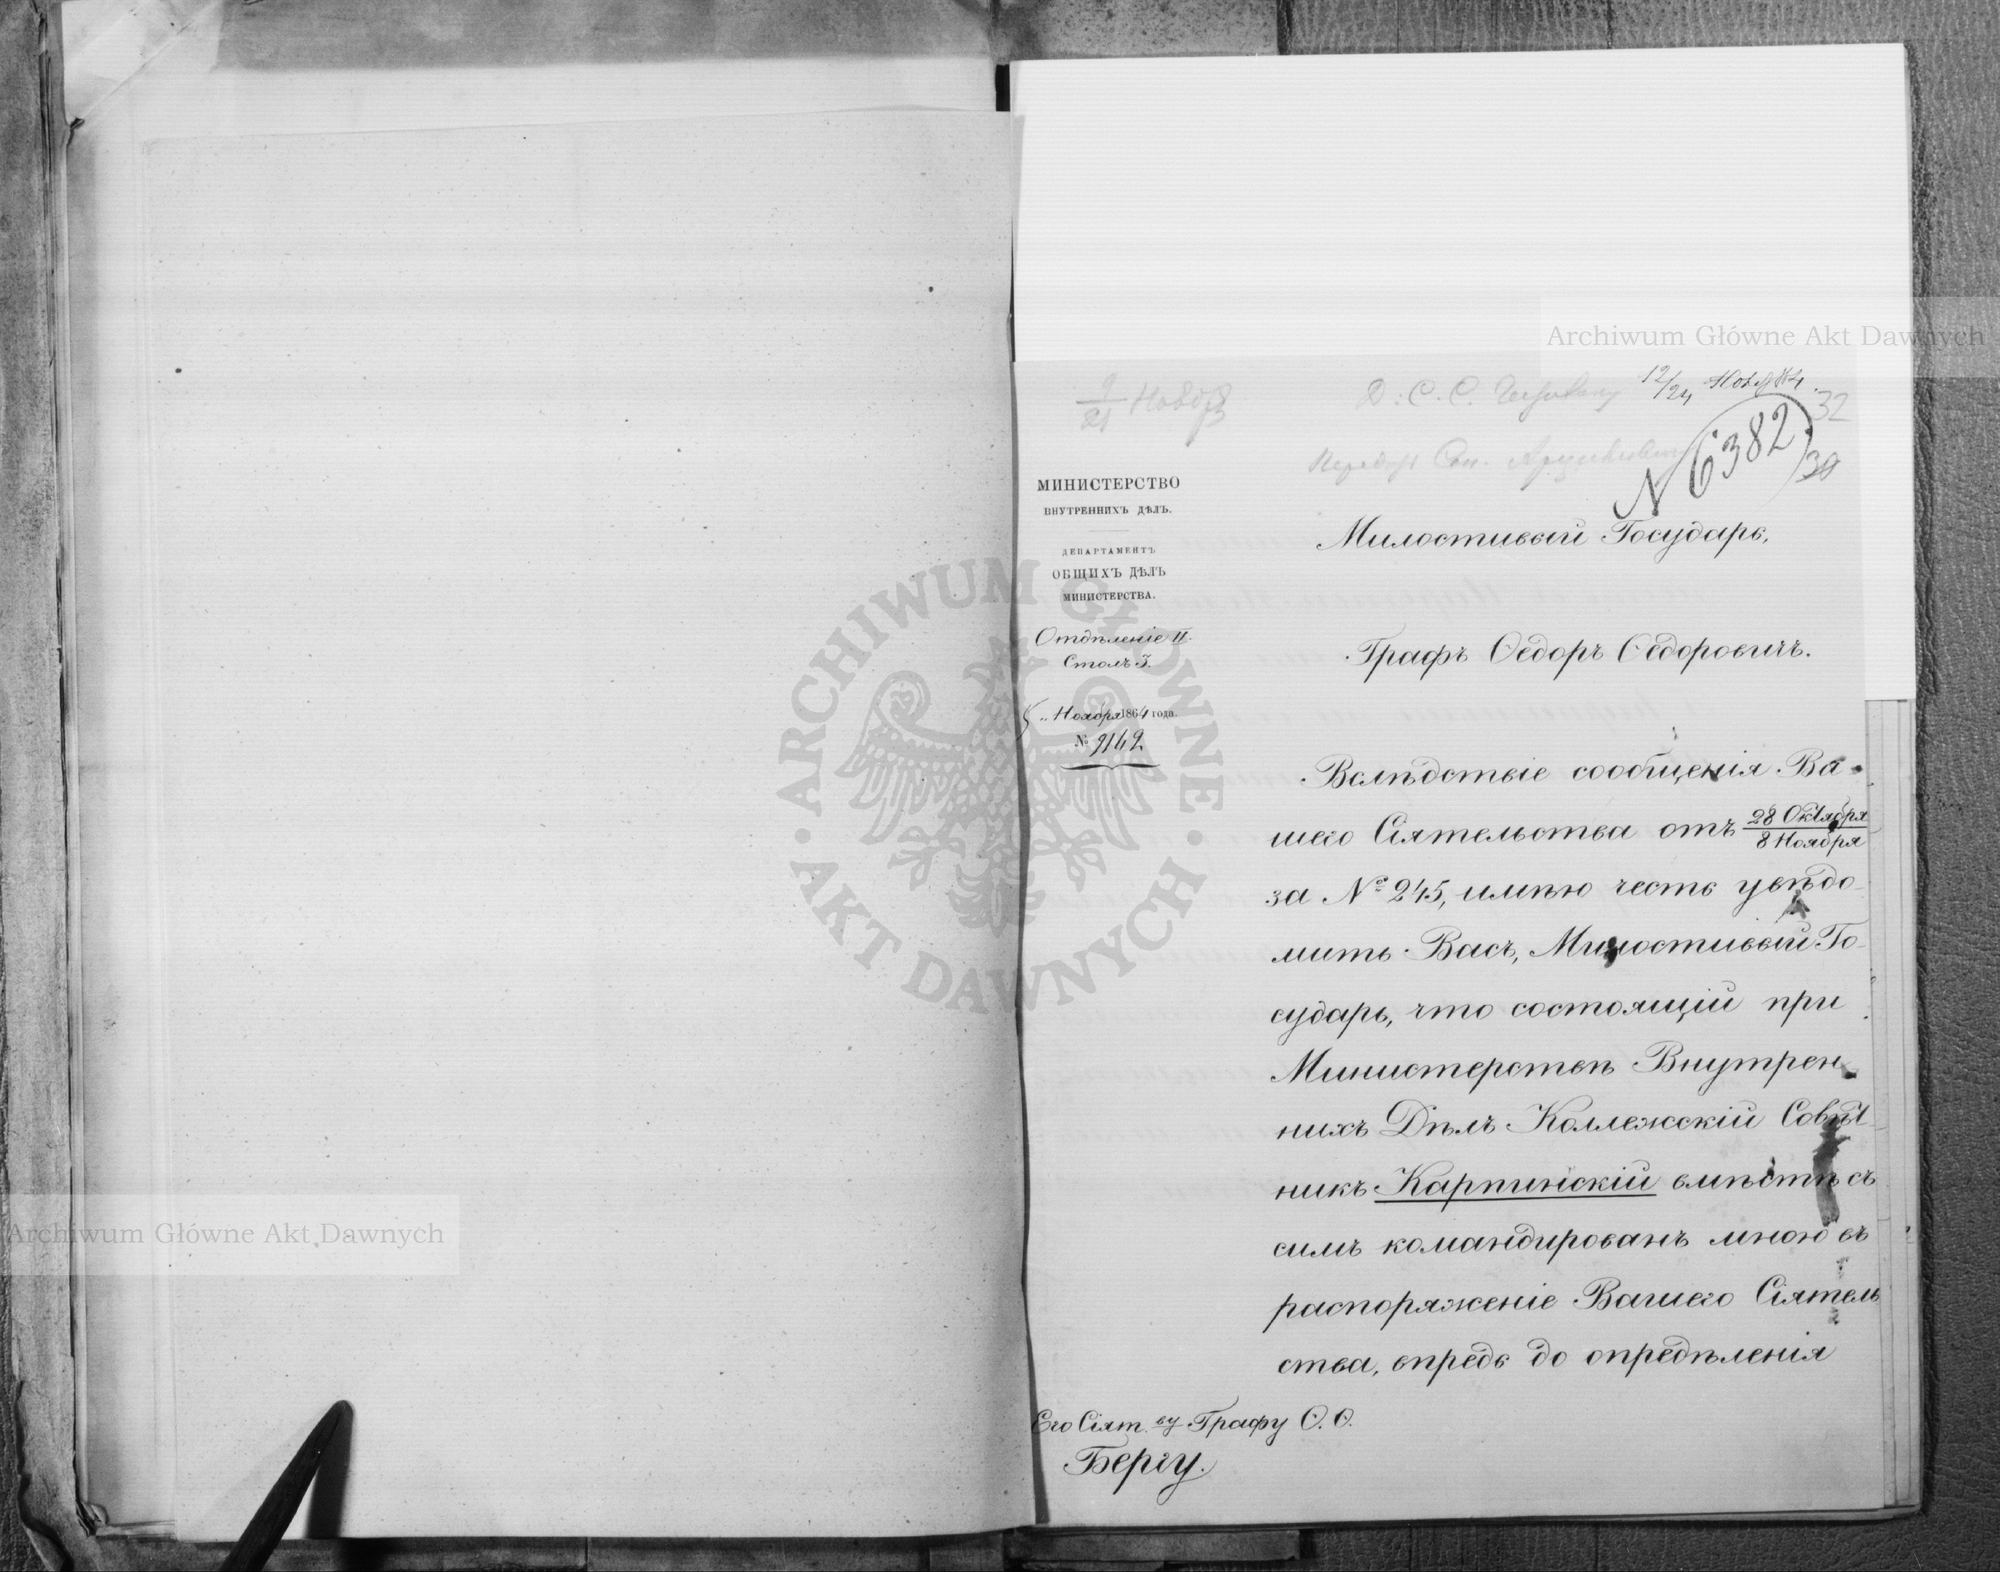 9/21 Ноября
Д. С. С.
12/24 Нояб. 64.
32
№ 6382
30
МИНИСТЕРСТВО
ВНУТРЕННИХЪ ДѢЛЪ.
ДЕПАРТАМЕНТЪ
ОБЩИХЪ ДѢЛЪ
МИНИСТЕРСТВА.
Отдѣленіе II.
Столъ 3.
5 „ Ноября 1864 года.
№ 9142
Милостивый Государь,
Графъ Ѳедоръ Ѳедоровичъ.
Вслѣдствіе сообщенія Ва-
шего Сіятельства отъ 28 Октября / 8 Ноября
за № 245, имѣю честь увѣдо-
мить Васъ, Милостивый Го-
сударь, что состоящій при
Министерствѣ Внутрен-
нихъ Дѣлъ Коллежскій Совѣт-
никъ Карпинскій вмѣстѣ съ
симъ командированъ мною въ
распоряженіе Вашего Сіятель
ства, впредь до опредѣленія
Его Сіят. ву Графу Ѳ. Ѳ.
Бергу.
Archiwum Główne Akt Dawnych
ARCHIWUM GŁÓWNE AKT DAWNYCH
Archiwum Główne Akt Dawnych